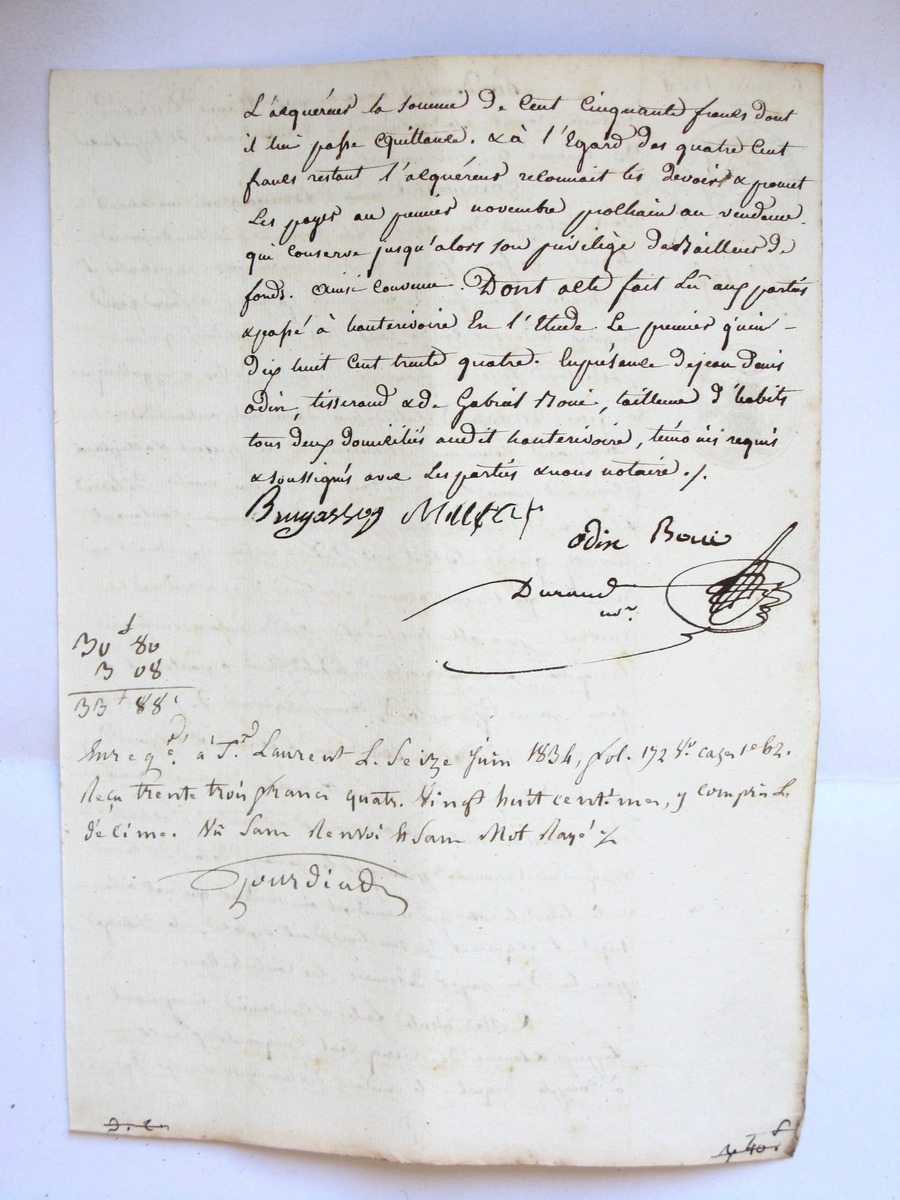 L'acquéreur la somme de Cent Cinquante francs dont
il lui passe Quittance. & à l'Egard des quatre Cent
francs restant l'acquéreur reconnait les devoir & promet
les payer au premier novembre prochain au vendeur
qui Conserve jusqu'alors son privilège de Bailleur de
fonds. Ainsi Convenu. Dont acte fait Lû aux parties
& passé à hauterivoire En l'Etude Le premier juin -
dix huit Cent trente quatre. En présence de jean Denis
Odin, tisserand & de Gabriel Bouié, tailleur d'habits
tous deux domiciliés audit hauterivoire, témoins requis
& soussignés avec Les parties & nous notaire ./.
Odin Bouié
Durand
nore.
30f 80
3 08
33f 88c
Enregé. à St. Laurent Le Seize Juin 1834, fol. 172 Vo. cases 1 et 2.
Reçu trente trois francs quatre Vingt huit centimes, y compris Le
décime. Vu Sans Renvoi ni Sans Mot Rayé ./.